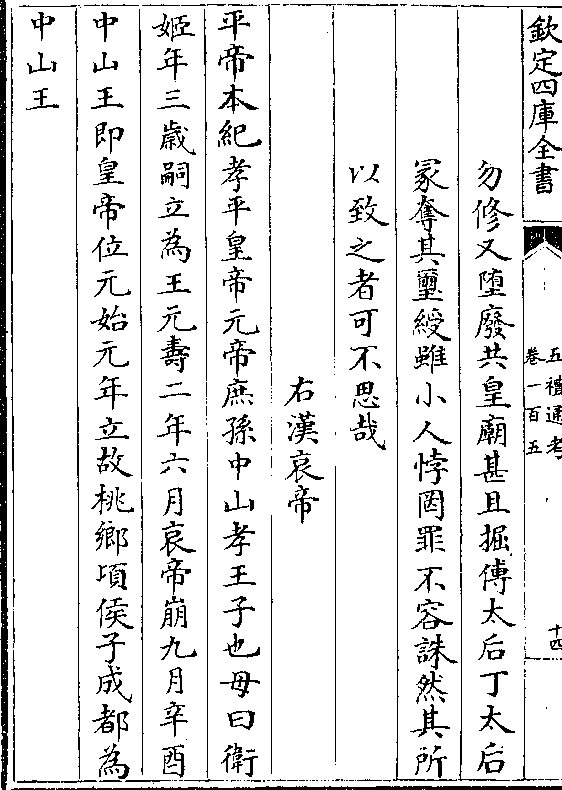 欽定四庫全書
五禮通考
卷一百五
十四
勿修又墮廢共皇廟甚且掘傅太后丁太后
冢奪其璽綬雖小人悖罔罪不容誅然其所
以致之者可不思哉
右漢哀帝
平帝本紀孝平皇帝元帝庶孫中山孝王子也母曰衛
姬年三歲嗣立為王元壽二年六月哀帝崩九月辛酉
中山王即皇帝位元始元年立故桃鄉頃侯子成都為
中山王